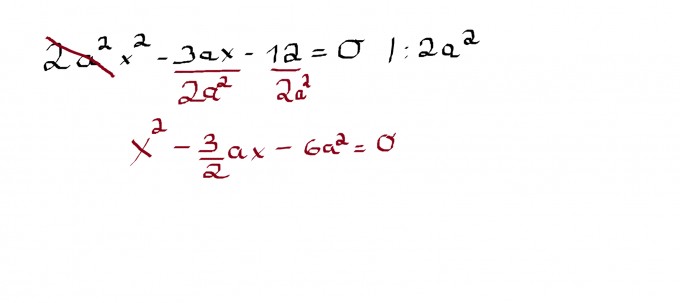 2a² x² - 3ax/2a² - 12/2a² = 0 | : 2a²
x² - 3/2 ax - 6a² = 0